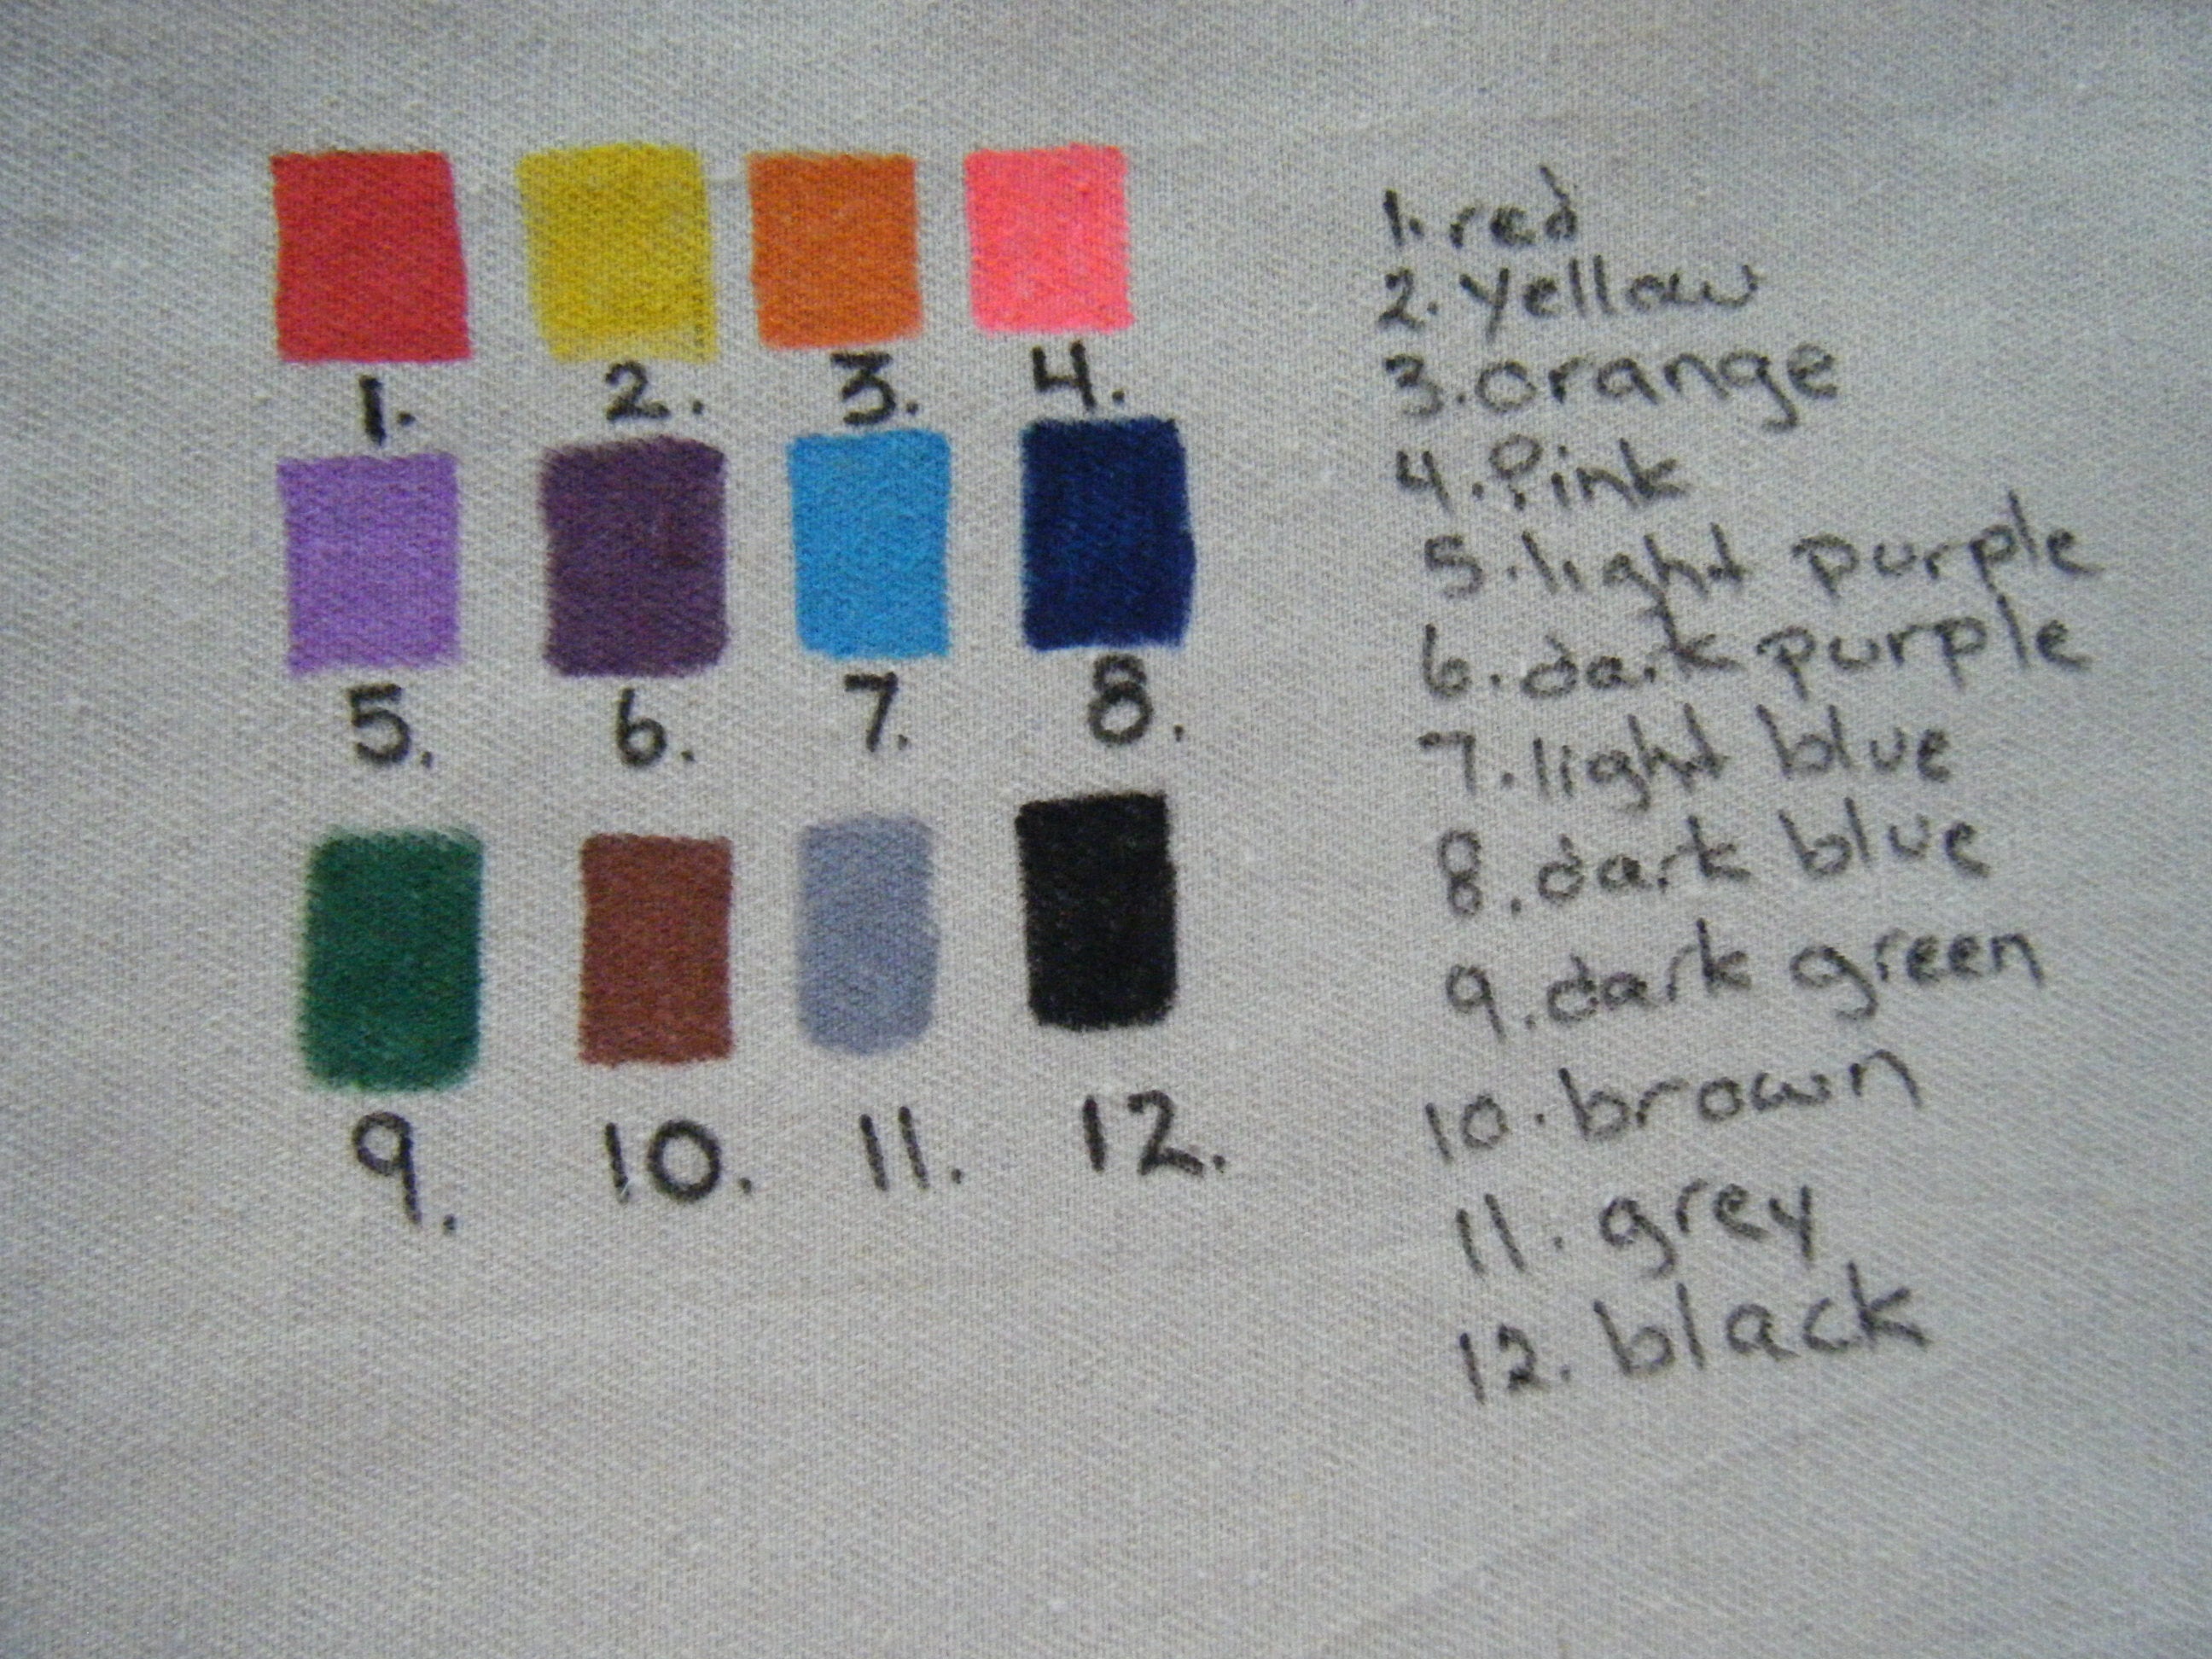 1. 2. 3. 4.
5. 6. 7. 8.
9. 10. 11. 12.
1. red
2. yellow
3. orange
4. Pink
5. light purple
6. dark purple
7. light blue
8. dark blue
9. dark green
10. brown
11. grey
12. black